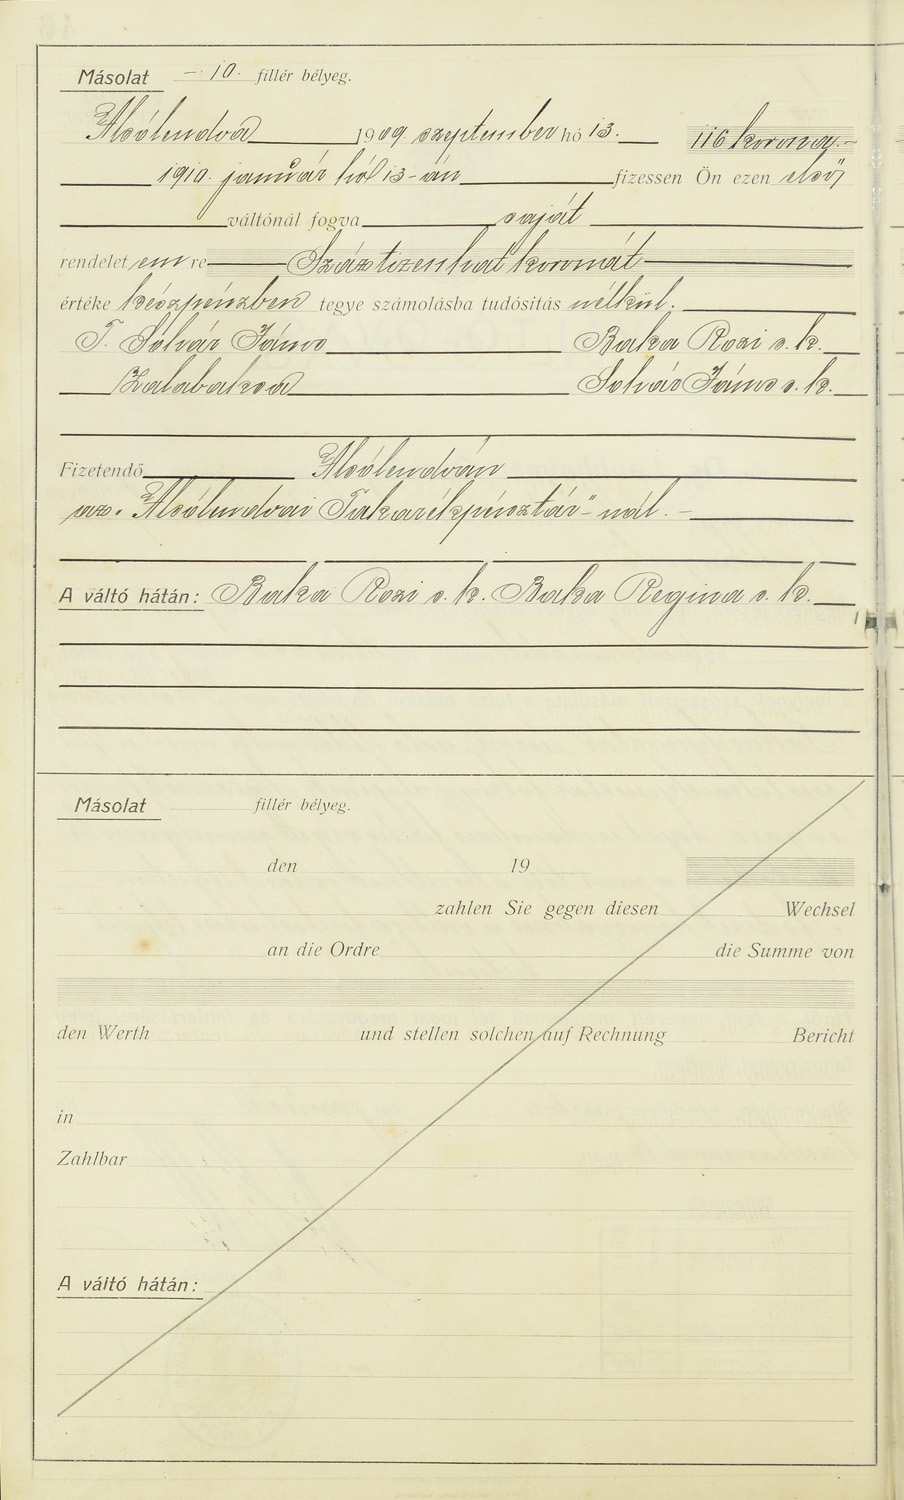 Másolat – 10. fillér bélyeg.
Alsólendva 1909 szeptember hó 13. 116 korona.–
1910. január hó 13-án fizessen Ön ezen első"
váltónál fogva saját
rendelet em re Száztizenhat koronát
értéke készpénzben tegye számolásba tudósítás nélkül.
T. Sólvár János Baka Rozi s. k.
Zalabaksa Solvár János s. k.
Fizetendő Alsólendván
az „Alsólendvai Takarékpénztár"-nál. –
A váltó hátán: Baka Rozi s. k. Baka Regina s. k.
Másolat fillér bélyeg.
den 19
zahlen Sie gegen diesen Wechsel
an die Ordre die Summe von
den Werth und stellen solchen auf Rechnung Bericht
in
Zahlbar
A váltó hátán: